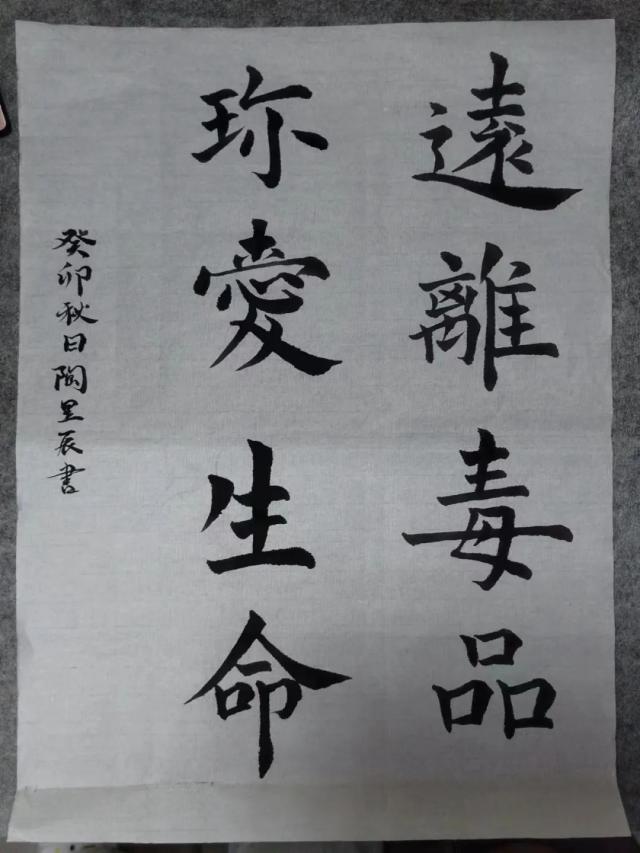 遠離毒品
珎愛生命
癸卯秋日陶里辰書